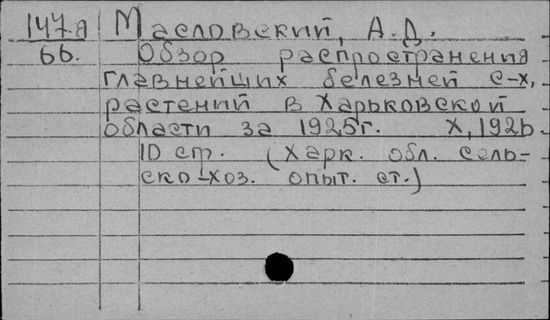 147.я Масловский, А.Д.
66. Обзор распространения
главнейших белезней с-х,
растений в Харьковской
области за 1925г. Х,1926.
10 ст. (Харк. обл. сель-
ско-хоз. опыт. ст.)